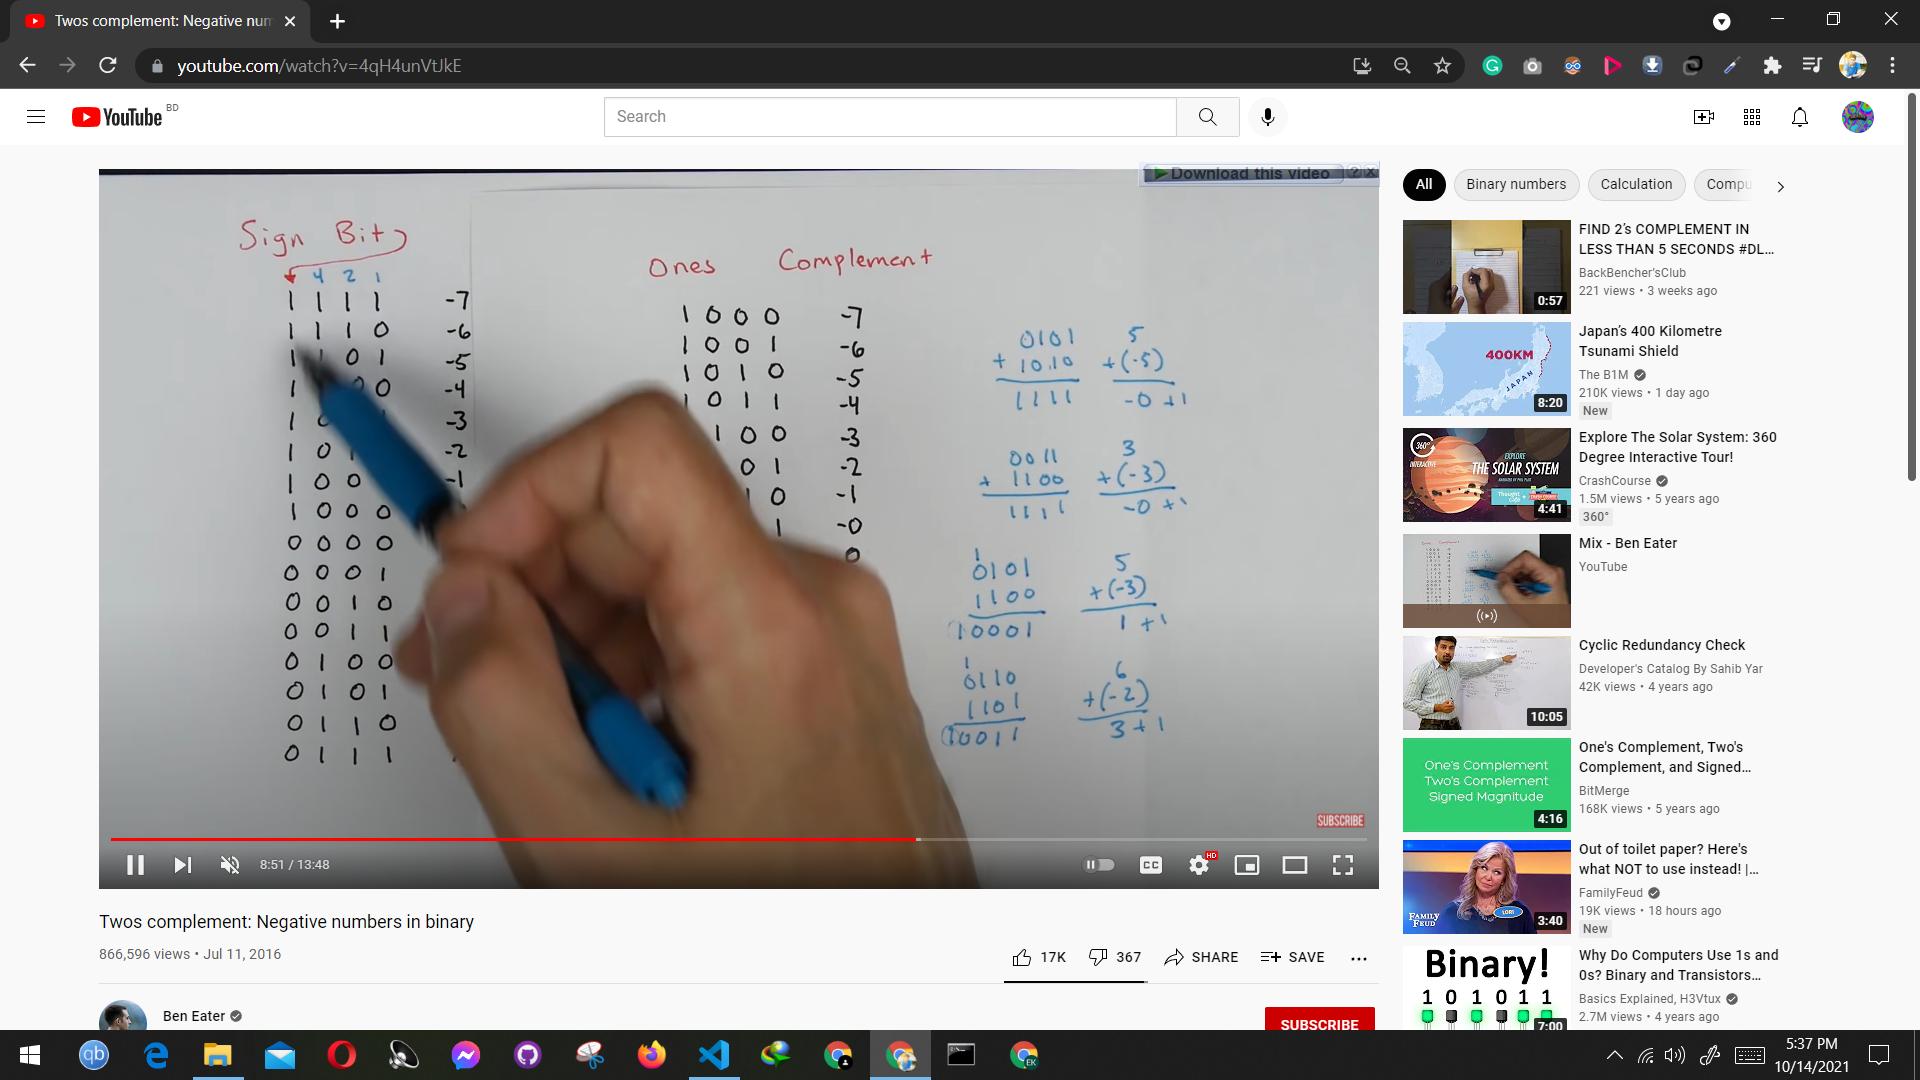 Twos complement: Negative num
youtube.com/watch?v=4qH4unVtJkE
YouTube BD
Search
Download this video ? X
Sign Bit
4 2 1
1 1 1 1 -7
1 1 1 0 -6
1 1 0 1 -5
1 0 0 -4
1 0 -3
1 0 1 -2
1 0 0 -1
1 0 0 0
0 0 0 0
0 0 0 1
0 0 1 0
0 0 1 1
0 1 0 0
0 1 0 1
0 1 1 0
0 1 1 1
Ones Complement
1 0 0 0 -7
1 0 0 1 -6
1 0 1 0 -5
1 0 1 1 -4
1 0 0 -3
0 1 -2
1 0 -1
1 -0
0
0101 5
+ 1010 +(-5)
1111 -0 +1
0011 3
+ 1100 +(-3)
1111 -0 +1
1
0101 5
1100 +(-3)
10001 1 +1
1
0110 6
1101 +(-2)
10011 3 +1
SUBSCRIBE
8:51 / 13:48
CC
HD
Twos complement: Negative numbers in binary
866,596 views • Jul 11, 2016
17K 367 SHARE SAVE
Ben Eater
SUBSCRIBE
All Binary numbers Calculation Compu
FIND 2's COMPLEMENT IN
LESS THAN 5 SECONDS #DL...
BackBencher'sClub
221 views • 3 weeks ago
0:57
400KM
JAPAN
8:20
Japan's 400 Kilometre
Tsunami Shield
The B1M
210K views • 1 day ago
New
360°
INTERACTIVE
EXPLORE
THE SOLAR SYSTEM
4:41
Explore The Solar System: 360
Degree Interactive Tour!
CrashCourse
1.5M views • 5 years ago
360°
Mix - Ben Eater
YouTube
10:05
Cyclic Redundancy Check
Developer's Catalog By Sahib Yar
42K views • 4 years ago
One's Complement
Two's Complement
Signed Magnitude
4:16
One's Complement, Two's
Complement, and Signed...
BitMerge
168K views • 5 years ago
FAMILY
FEUD
LORI
3:40
Out of toilet paper? Here's
what NOT to use instead! |...
FamilyFeud
19K views • 18 hours ago
New
Binary!
1 0 1 0 1 1
7:00
Why Do Computers Use 1s and
0s? Binary and Transistors...
Basics Explained, H3Vtux
2.7M views • 4 years ago
qb
EK
5:37 PM
10/14/2021